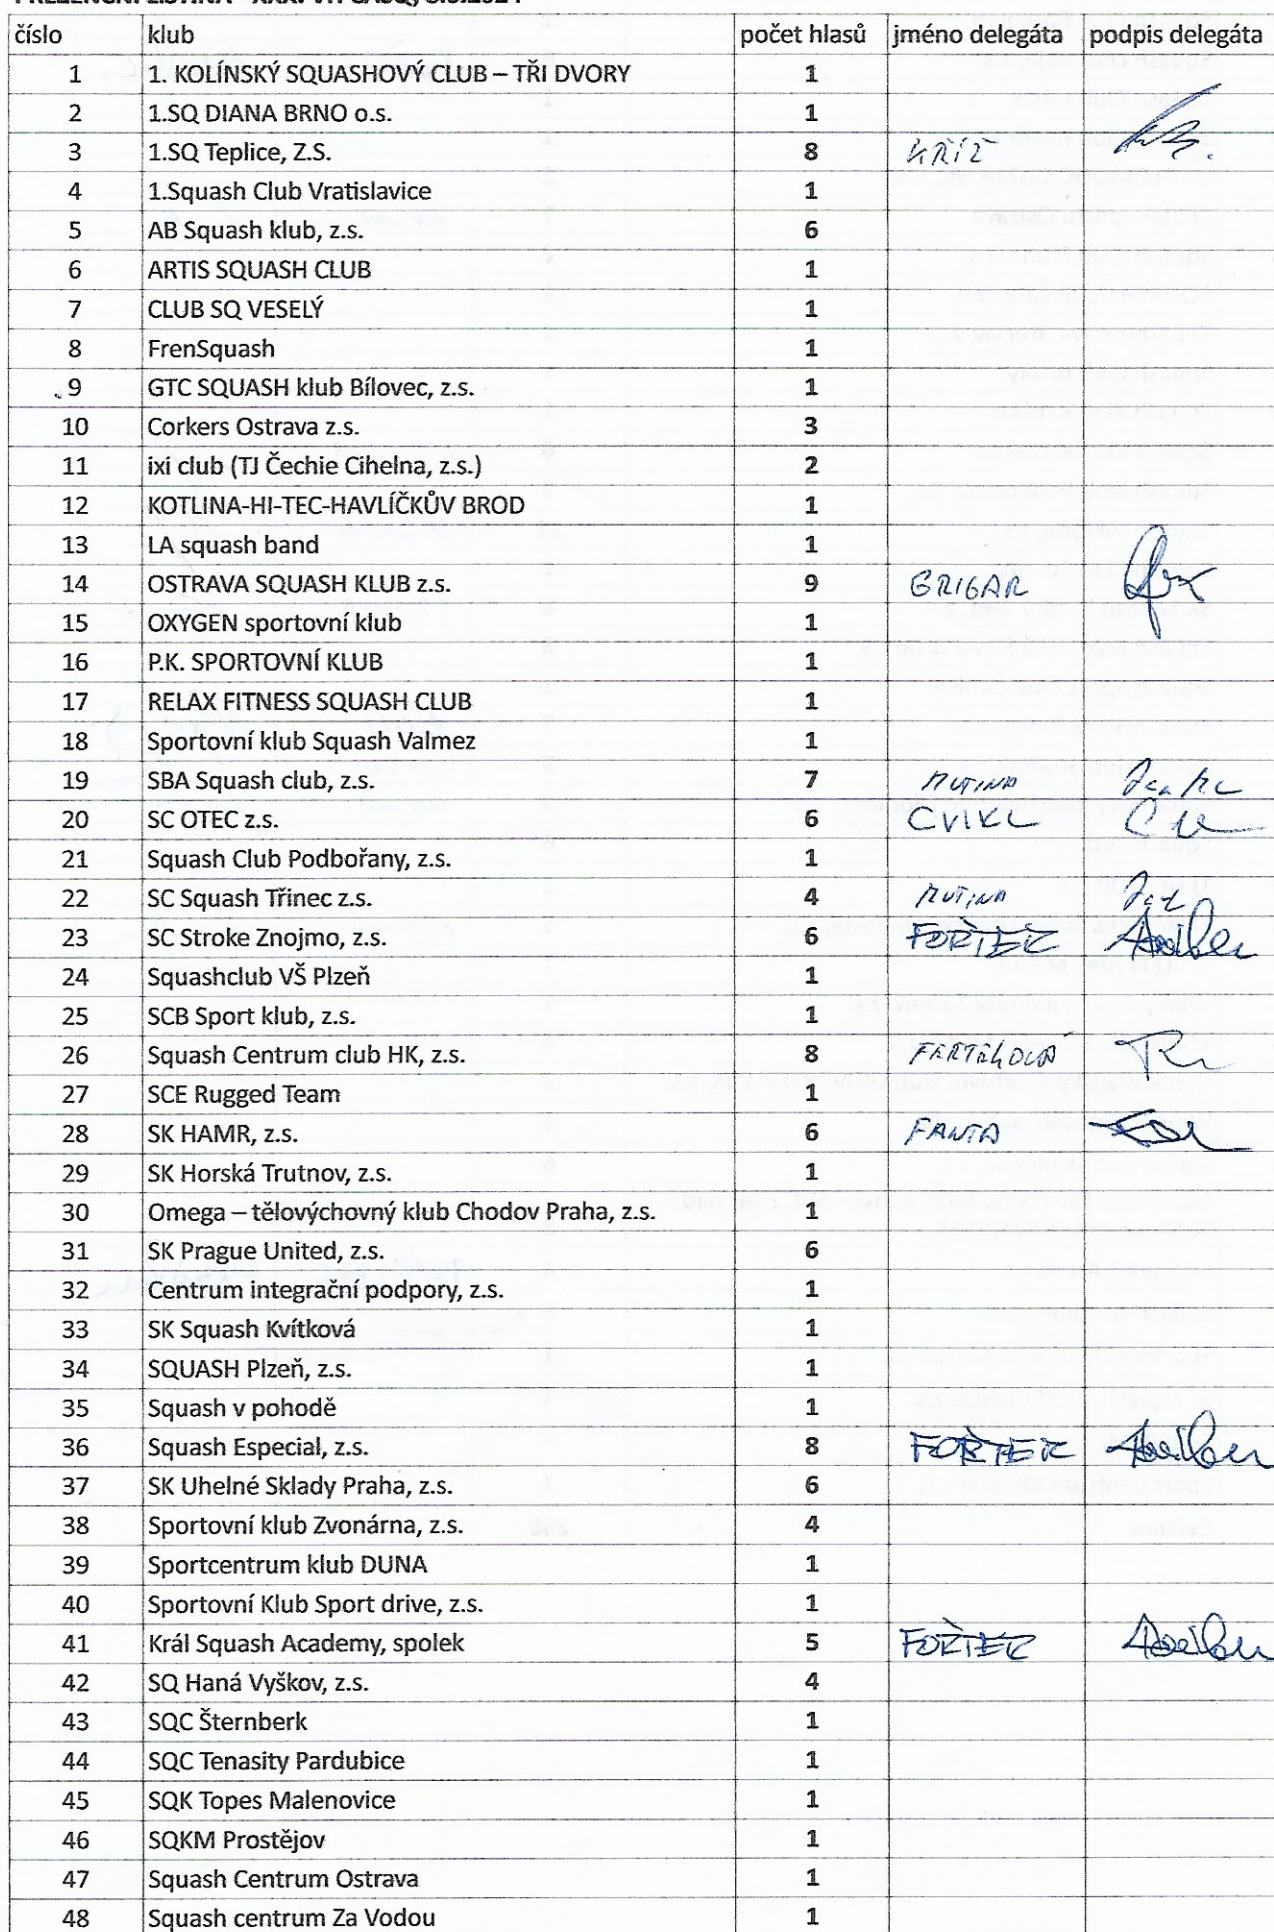 číslo klub počet hlasů jméno delegáta podpis delegáta
1 1. KOLÍNSKÝ SQUASHOVÝ CLUB – TŘI DVORY 1
2 1.SQ DIANA BRNO o.s. 1
3 1.SQ Teplice, Z.S. 8 KŘÍŽ
4 1.Squash Club Vratislavice 1
5 AB Squash klub, z.s. 6
6 ARTIS SQUASH CLUB 1
7 CLUB SQ VESELÝ 1
8 FrenSquash 1
9 GTC SQUASH klub Bílovec, z.s. 1
10 Corkers Ostrava z.s. 3
11 ixi club (TJ Čechie Cihelna, z.s.) 2
12 KOTLINA-HI-TEC-HAVLÍČKŮV BROD 1
13 LA squash band 1
14 OSTRAVA SQUASH KLUB z.s. 9 GRIGAR
15 OXYGEN sportovní klub 1
16 P.K. SPORTOVNÍ KLUB 1
17 RELAX FITNESS SQUASH CLUB 1
18 Sportovní klub Squash Valmez 1
19 SBA Squash club, z.s. 7 MUTINA
20 SC OTEC z.s. 6 CVIKL
21 Squash Club Podbořany, z.s. 1
22 SC Squash Třinec z.s. 4 MUTINA
23 SC Stroke Znojmo, z.s. 6 FOŘTEK
24 Squashclub VŠ Plzeň 1
25 SCB Sport klub, z.s. 1
26 Squash Centrum club HK, z.s. 8
27 SCE Rugged Team 1
28 SK HAMR, z.s. 6 FANTA
29 SK Horská Trutnov, z.s. 1
30 Omega – tělovýchovný klub Chodov Praha, z.s. 1
31 SK Prague United, z.s. 6
32 Centrum integrační podpory, z.s. 1
33 SK Squash Kvítková 1
34 SQUASH Plzeň, z.s. 1
35 Squash v pohodě 1
36 Squash Especial, z.s. 8 FOŘTEK
37 SK Uhelné Sklady Praha, z.s. 6
38 Sportovní klub Zvonárna, z.s. 4
39 Sportcentrum klub DUNA 1
40 Sportovní Klub Sport drive, z.s. 1
41 Král Squash Academy, spolek 5 FOŘTEK
42 SQ Haná Vyškov, z.s. 4
43 SQC Šternberk 1
44 SQC Tenasity Pardubice 1
45 SQK Topes Malenovice 1
46 SQKM Prostějov 1
47 Squash Centrum Ostrava 1
48 Squash centrum Za Vodou 1